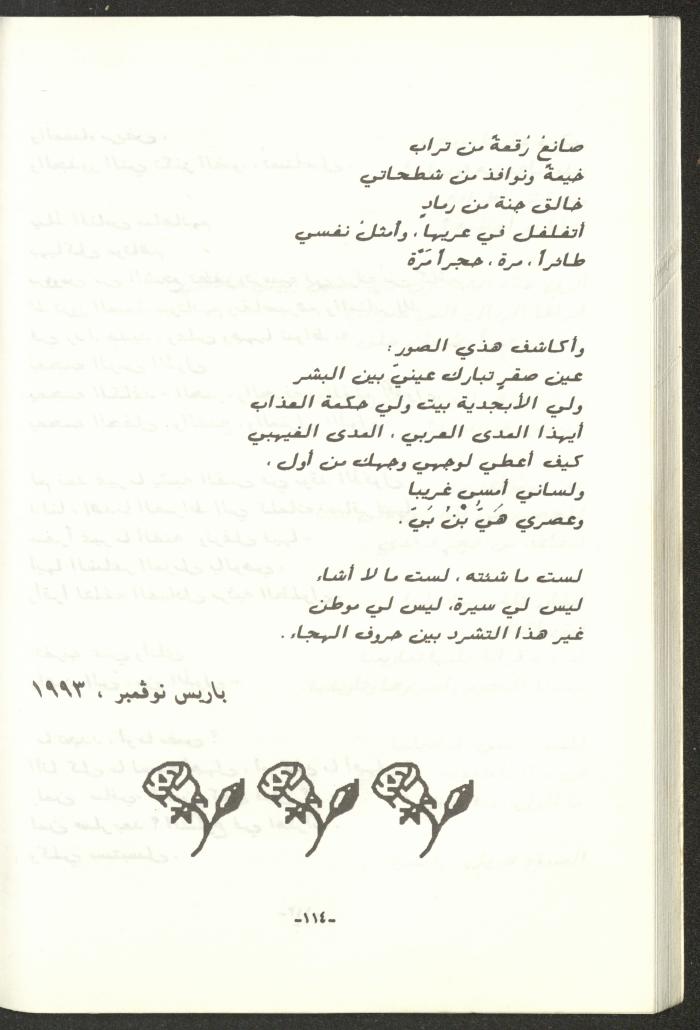 صانعُ رُقعةً من تراب
خيمةً ونوافذ من شطحاتي
خالق جنة من رمادٍ
أتغلغل في عريها، وأمثلُ نفسي
طائراً، مرة، حجراً مَرَّة
وأكاشف هذي الصور:
عين صقرٍ تبارك عينيّ بين البشر
ولي الأبجدية بيت ولي حكمة العذاب
أيهذا المدى العربي، المدى الغيهبي
كيف أعطي لوجهي وجهك من أول،
ولساني أمسى غريبا
وعصري هَيَّ بْنُ بَيّ.
لست ما شئته، لست ما لا أشاء
ليس لي سيرة، ليس لي موطن
غير هذا التشرد بين حروف الهجاء.
باريس نوڤمبر ، ١٩٩٣
-١١٤-